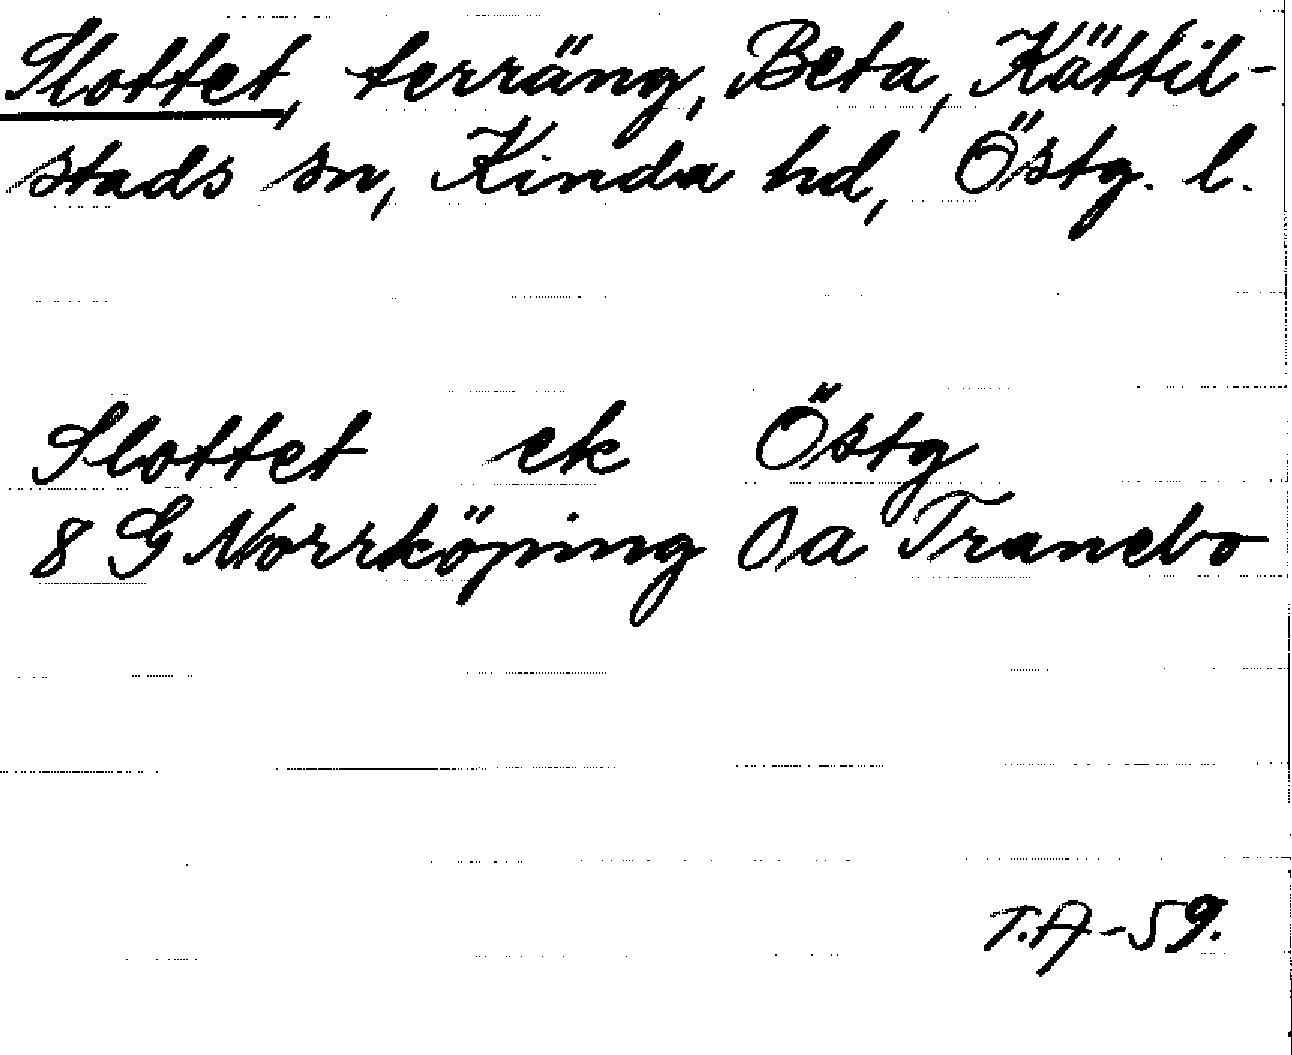 Slottet, terräng, Beta, Kättil-
stads sn, Kinda hd, Östg. l.
Slottet ek Östg
8 G Norrköping 0a Tranebo
T.A-59.